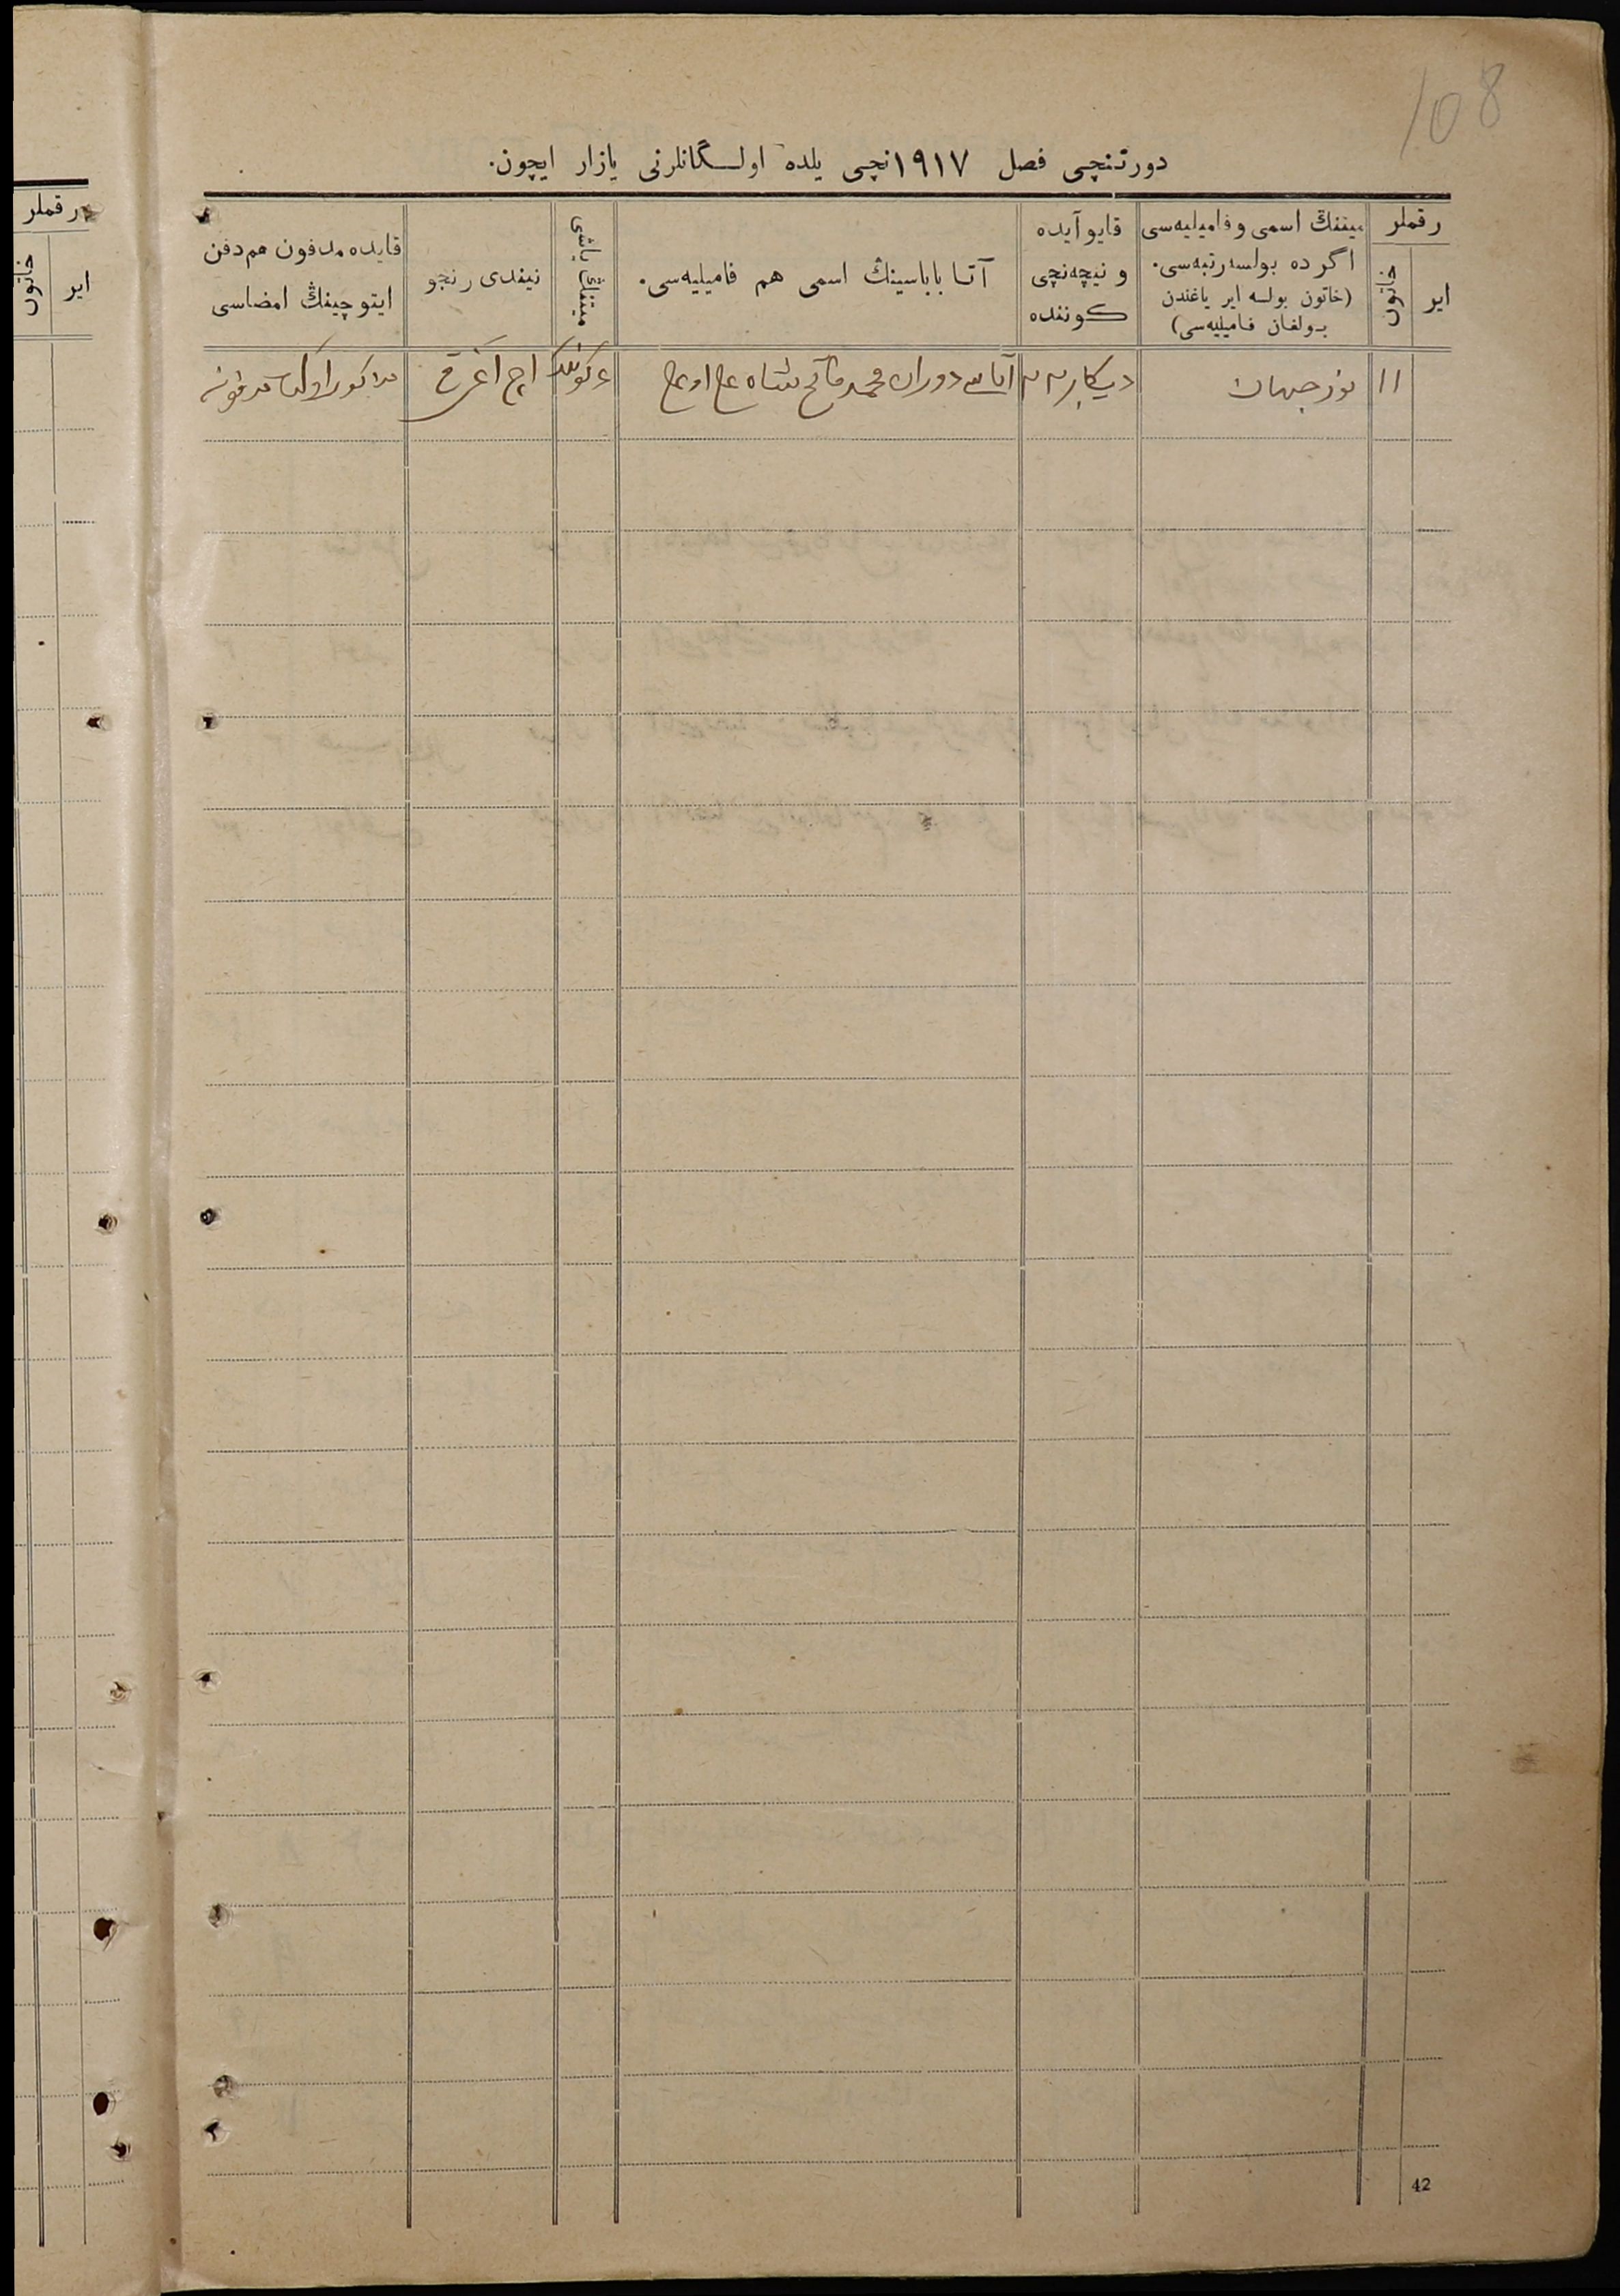 108
دورتنچی فصل ١٩١٧نچی یلده اولـگانلرنی یازار ایچون.
رقملر
ایر
خاتون
میتنڭ اسمی و فامیلیه‌سی
اگر ده بولسه رتبه‌سی.
(خاتون بولسه ایر یاغندن
بولغان فامیلیه‌سی)
قایو آیده
و نیچه‌نچی
کوننده
آتا باباسینڭ اسمی هم فامیلیه‌سی.
میتنڭ یاشی
نیندی رنجو
قایده مدفون هم دفن
ایتوچینڭ امضاسی
١١
نورجیهان
دیکابر
آتاسی دوران محمد فاتح شاه
اچ آغرق
42
رقملر
ایر
خاتون